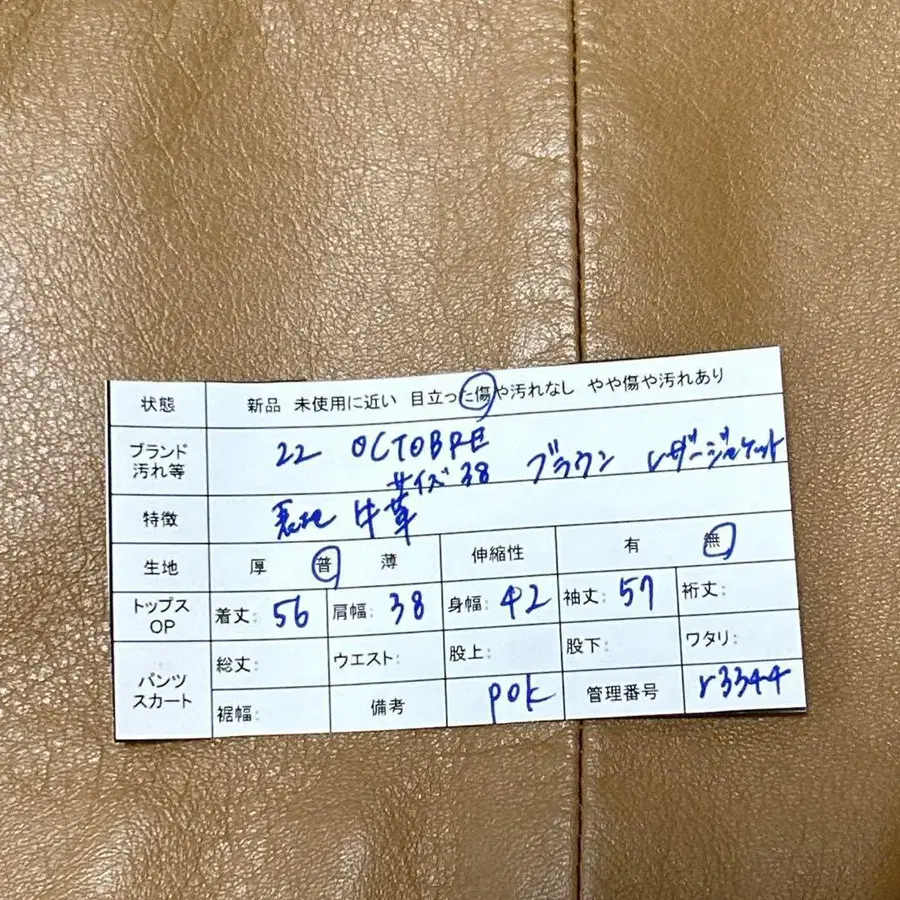 状態 新品 未使用に近い 目立った傷や汚れなし やや傷や汚れあり
ブランド 22 OCTOBRE
汚れ等 サイズ38 ブラウン レザージャケット
特徴 裏地 牛革
生地 厚 普 薄 伸縮性 有 無
トップス OP 着丈: 56 肩幅: 38 身幅: 42 袖丈: 57 裄丈:
パンツ スカート 総丈: ウエスト: 股上: 股下: ワタリ:
裾幅: 備考 pok 管理番号 r3344